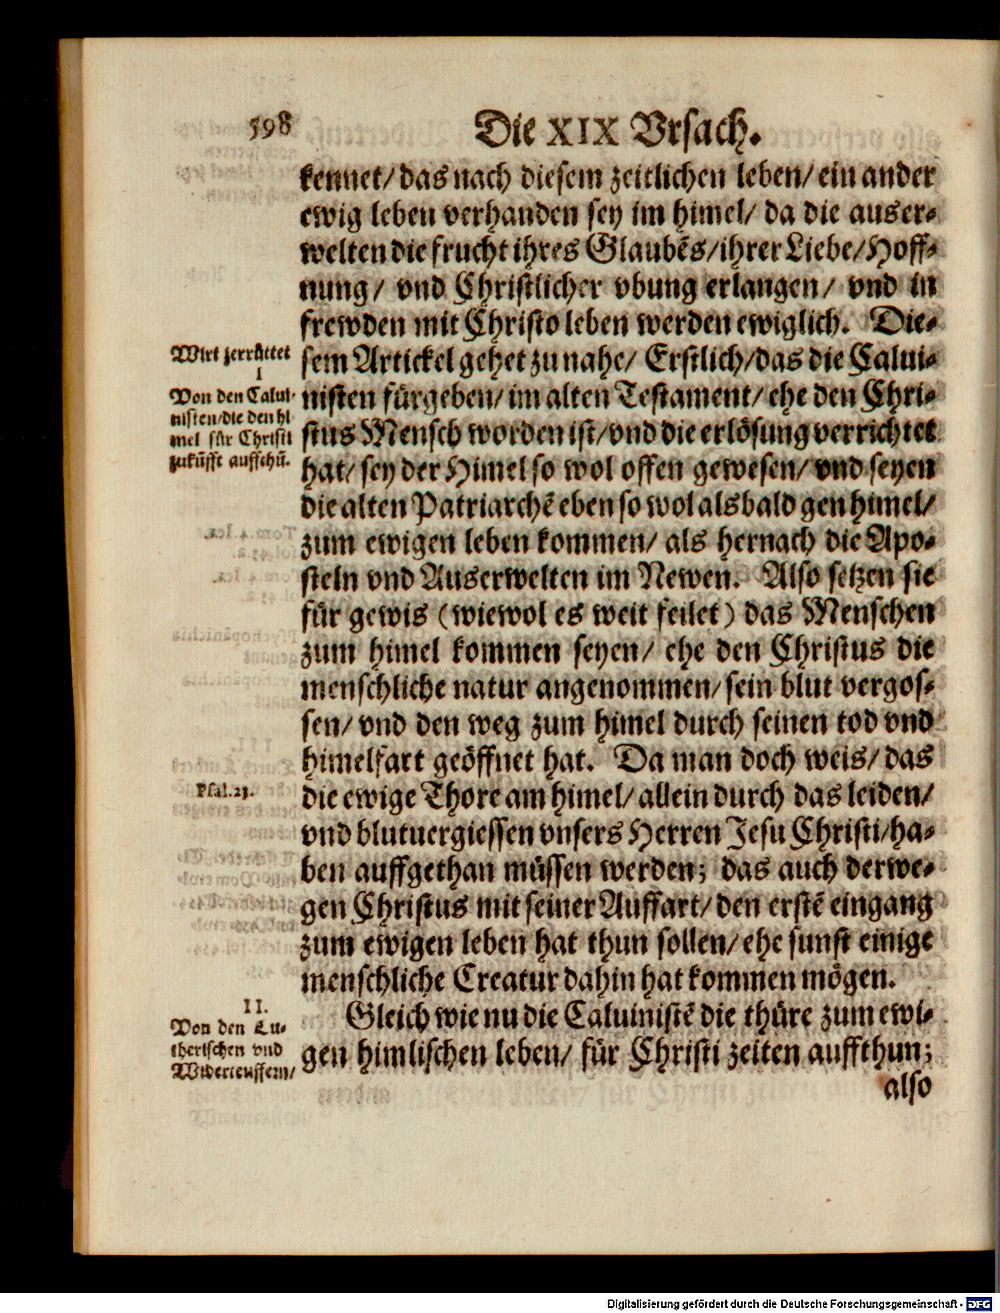 598
Die XIX Vrsach.
kennet/ das nach diesem zeitlichen leben/ ein ander
ewig leben verhanden sey im himel/ da die auser-
welten die frucht ihres Glaubēs/ ihrer Liebe/ Hoff-
nung/ vnd Christlicher vbung erlangen/ vnd in
frewden mit Christo leben werden ewiglich. Die-
sem Artickel gehet zu nahe/ Erstlich/ das die Calui-
nisten fürgeben/ im alten Testament/ ehe den Chri-
stus Mensch worden ist/ vnd die erlösung verrichtet
hat/ sey der Himel so wol offen gewesen/ vnd seyen
die alten Patriarchē eben so wol alsbald gen himel/
zum ewigen leben kommen/ als hernach die Apo-
steln vnd Auserwelten im Newen. Also setzen sie
für gewis (wiewol es weit feilet) das Menschen
zum himel kommen seyen/ ehe den Christus die
menschliche natur angenommen/ sein blut vergos-
sen/ vnd den weg zum himel durch seinen tod vnd
himelfart geöffnet hat. Da man doch weis/ das
die ewige Thore am himel/ allein durch das leiden/
vnd blutuergiessen vnsers Herren Jesu Christi/ ha-
ben auffgethan müssen werden; das auch derwe-
gen Christus mit seiner Auffart/ den erstē eingang
zum ewigen leben hat thun sollen/ ehe sunst einige
menschliche Creatur dahin hat kommen mögen.
Gleich wie nu die Caluinistē die thüre zum ewi-
gen himlischen leben/ für Christi zeiten auffthun;
also
Wirt zerrüttet
I
Von den Calui-
nisten/ die den hi
mel für Christi
zukūfft auffthū.
Psal. 23.
II.
Von den Lu-
therischen vnd
Widerteuffern/
Digitalisierung gefördert durch die Deutsche Forschungsgemeinschaft - DFG